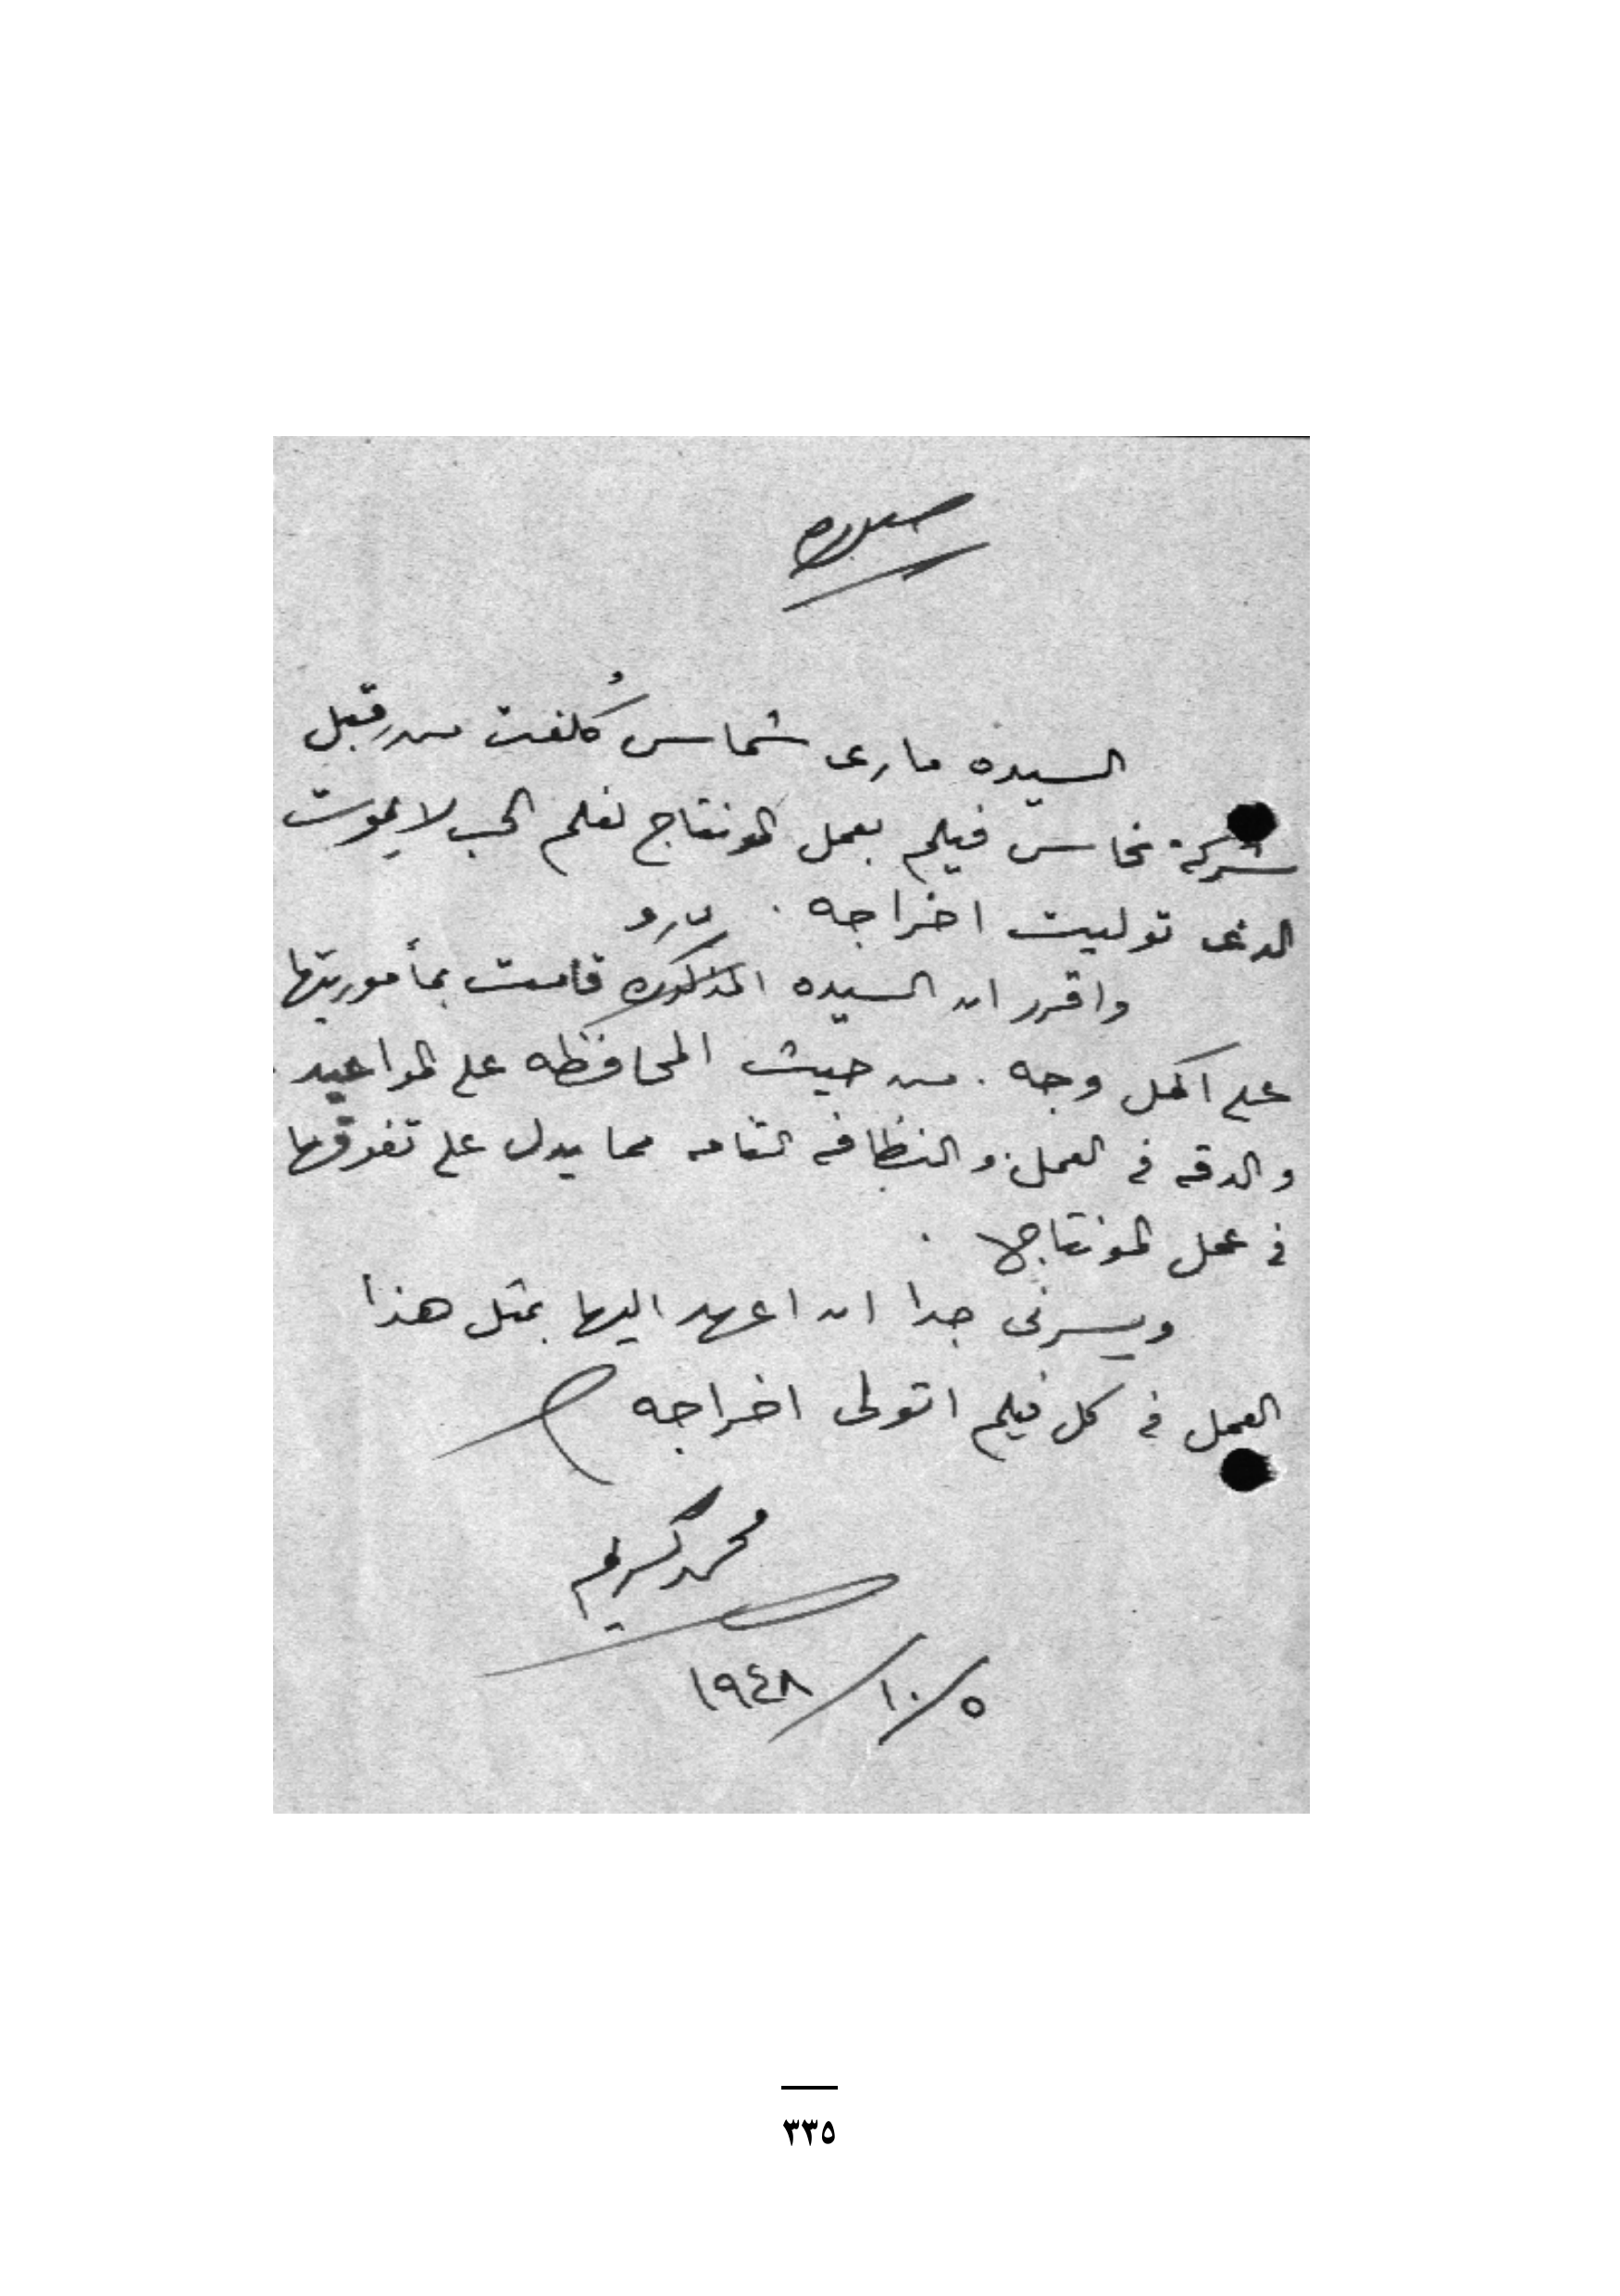 صوره
السيده مارى شماس كُلفت من قِبل
شركة نحاس فيلم بعمل المونتاج لفلم الحب لا يموت
الذى توليت اخراجه .
واقرر ان السيده المذكوره قامت بمأموريتها
على اكمل وجه . من حيث المحافظه على المواعيد .
والدقه فى العمل . والنظافه التامه مما يدل على تفوقها
فى عمل المونتاج .
ويسرنى جدا ان اعهد اليها بمثل هذا
العمل فى كل فيلم اتولى اخراجه
محمد كريم
٥/١٠/١٩٤٨
٣٣٥